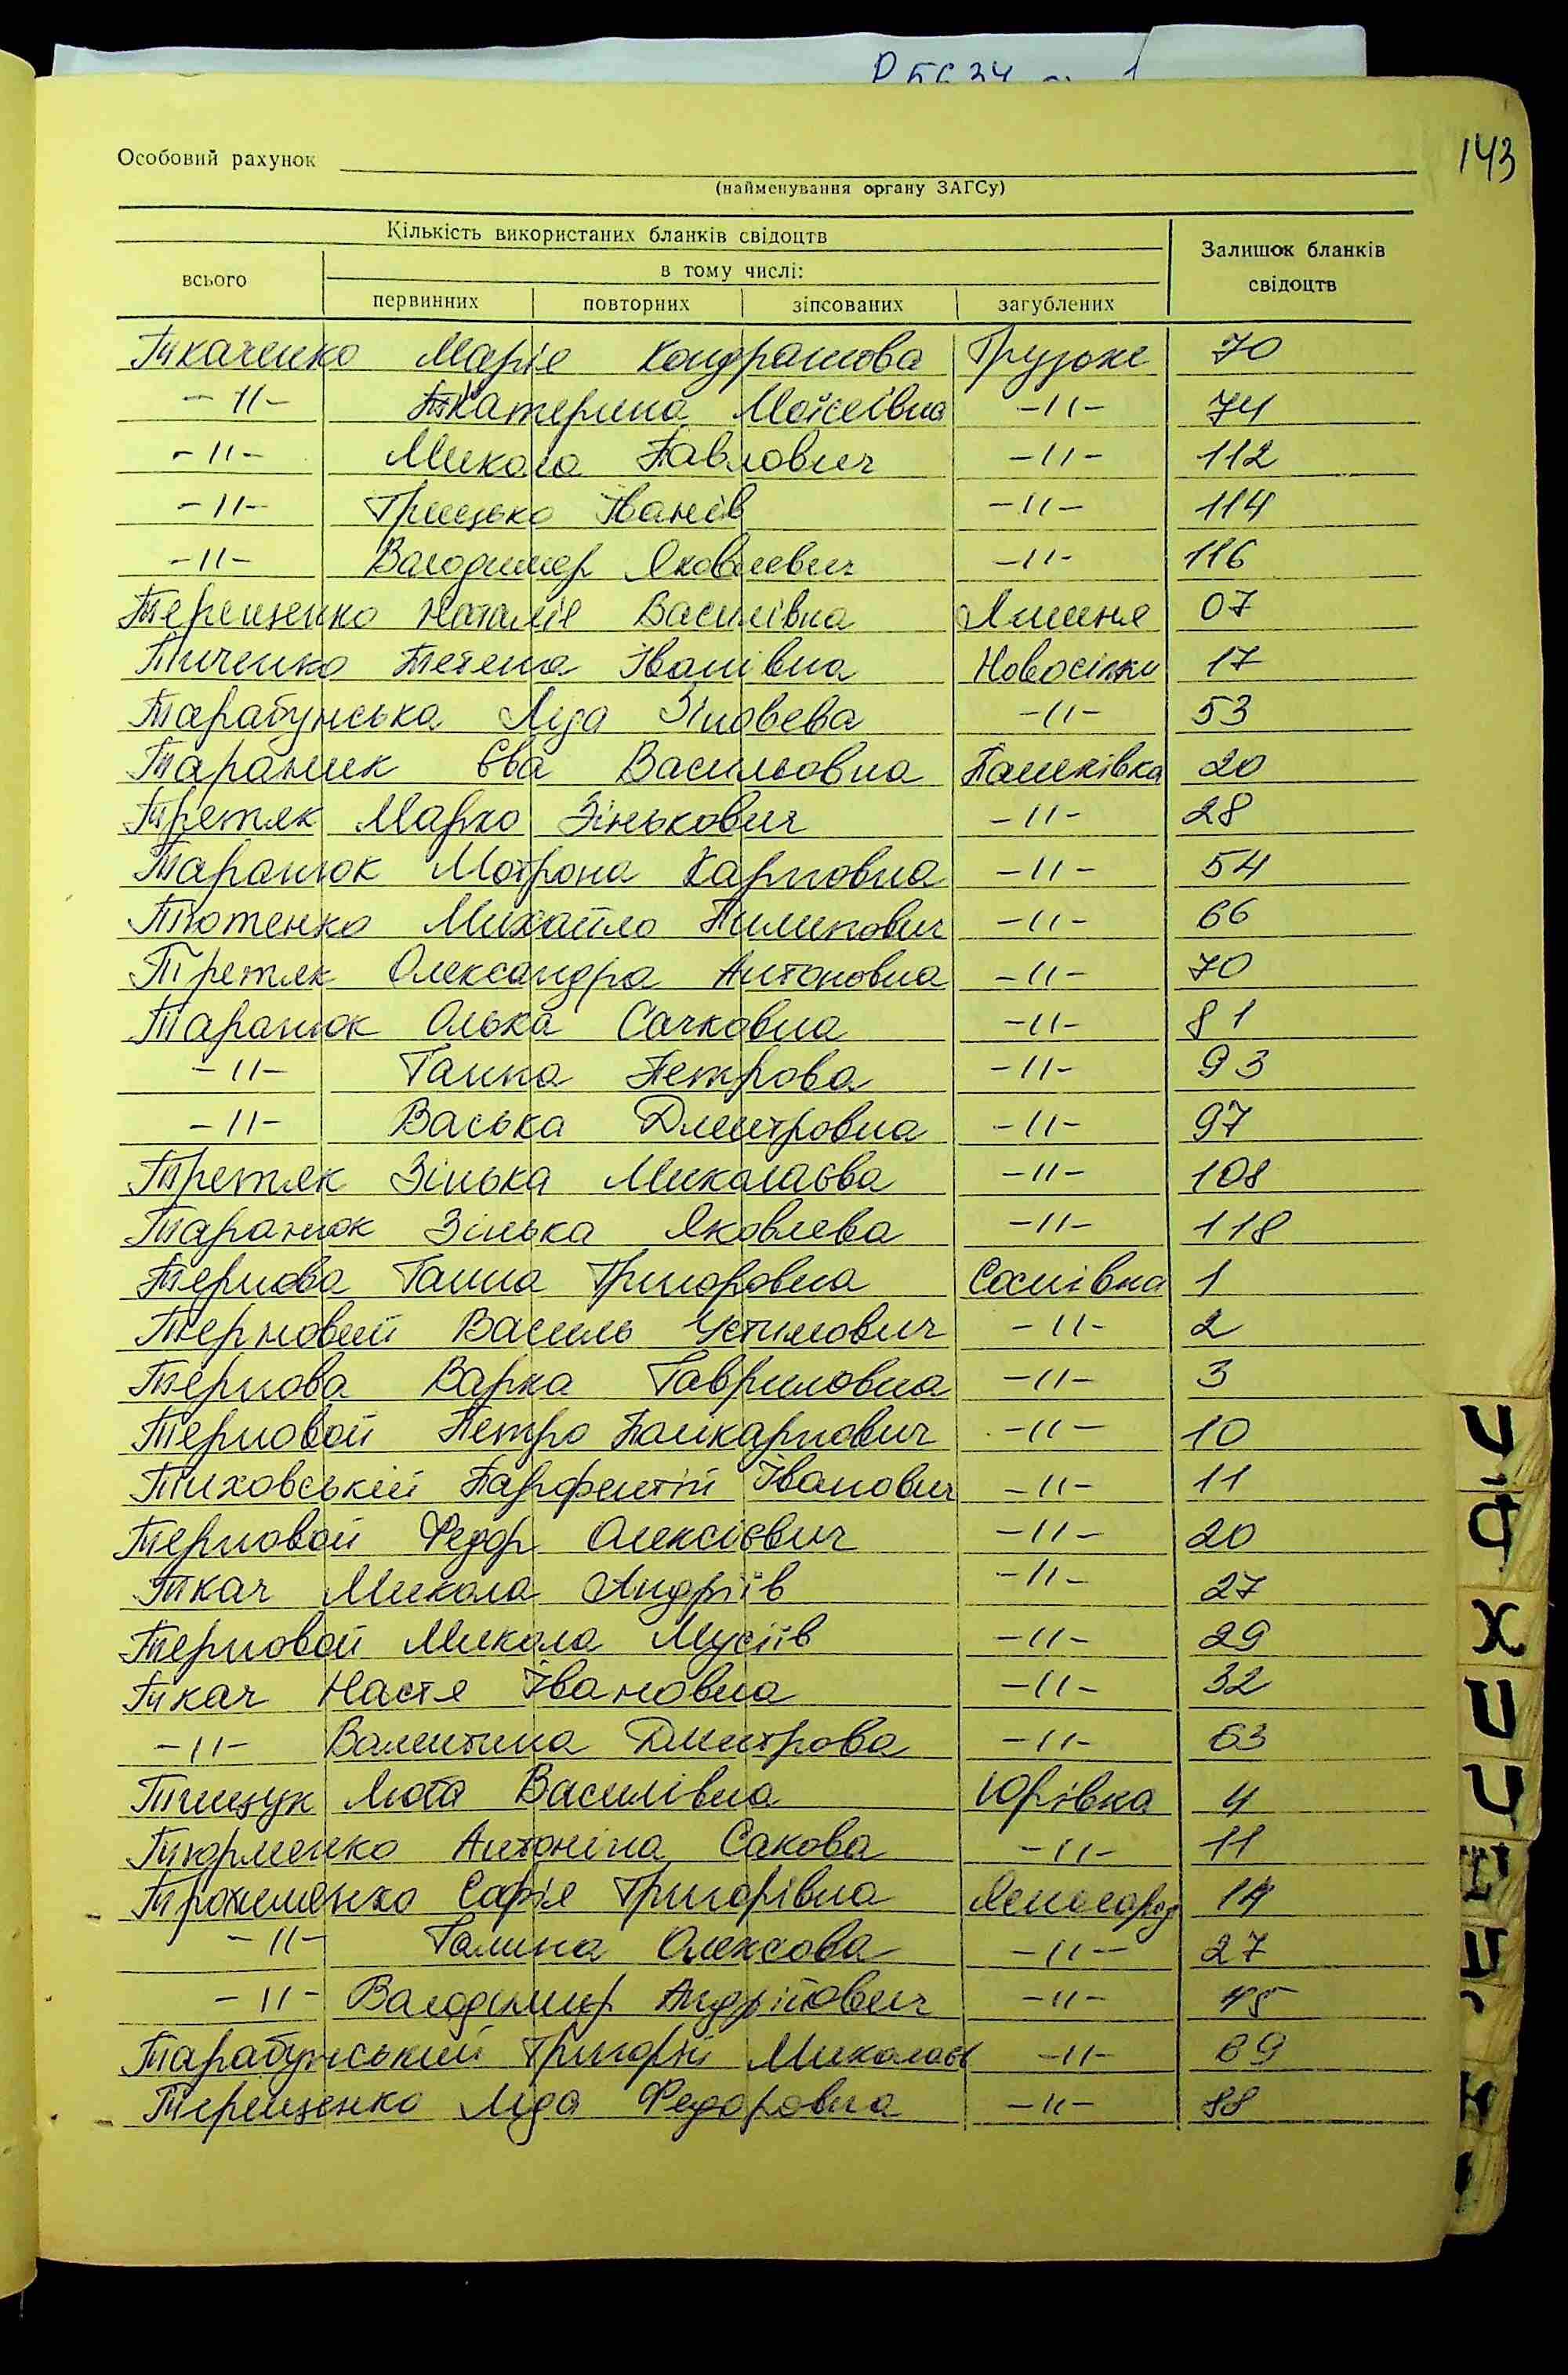 143
Особовий рахунок
(найменування органу ЗАГСу)
Кількість використаних бланків свідоцтв
Залишок бланків свідоцтв
всього
в тому числі:
первинних повторних зіпсованих загублених
Ткаченко Марія Кондратова Грузьке 70
-//- Катерина Мойсеївна -//- 74
-//- Микола Павлович -//- 112
-//- Грицько Іванів -//- 114
-//- Володимер Яковлевич -//- 116
Терещенко Наталія Василівна Лишня 07
Тиченко Тетена Іванівна Новосілки 17
Тарабунська Ліда Зіновева -//- 53
Тараник Єва Васильовна Пашківка 20
Третяк Марко Зінькович -//- 28
Таранюк Мотрона Карповна -//- 54
Тютенко Михайло Пилипович -//- 66
Третяк Олександра Антоновна -//- 70
Таранюк Олька Сачковна -//- 81
-//- Ганна Петрова -//- 93
-//- Васька Дмитровна -//- 97
Третяк Зінька Миколаєва -//- 108
Таранюк Зінька Яковлева -//- 118
Тернова Ганна Григоровна Соснівка 1
Терновий Василь Устимович -//- 2
Тернова Варка Гавриловна -//- 3
Терновой Петро Полікарпович -//- 10
Тиховський Парфентій Іванович -//- 11
Терновой Федор Олексієвич -//- 20
Ткач Микола Андріїв -//- 27
Терновой Микола Мусіїв -//- 29
Ткач Настя Івановна -//- 32
-//- Валентина Дмитрова -//- 63
Тищук Люба Василівна Юрівка 4
Тюрменко Антоніна Сакова -//- 11
Трохименко Софія Григорівна Ясногород 14
-//- Галина Олексова -//- 27
-//- Володимир Андрійович -//- 45
Тарабунський Григорій Миколаєв -//- 69
Терещенко Ліда Федоровна -//- 88